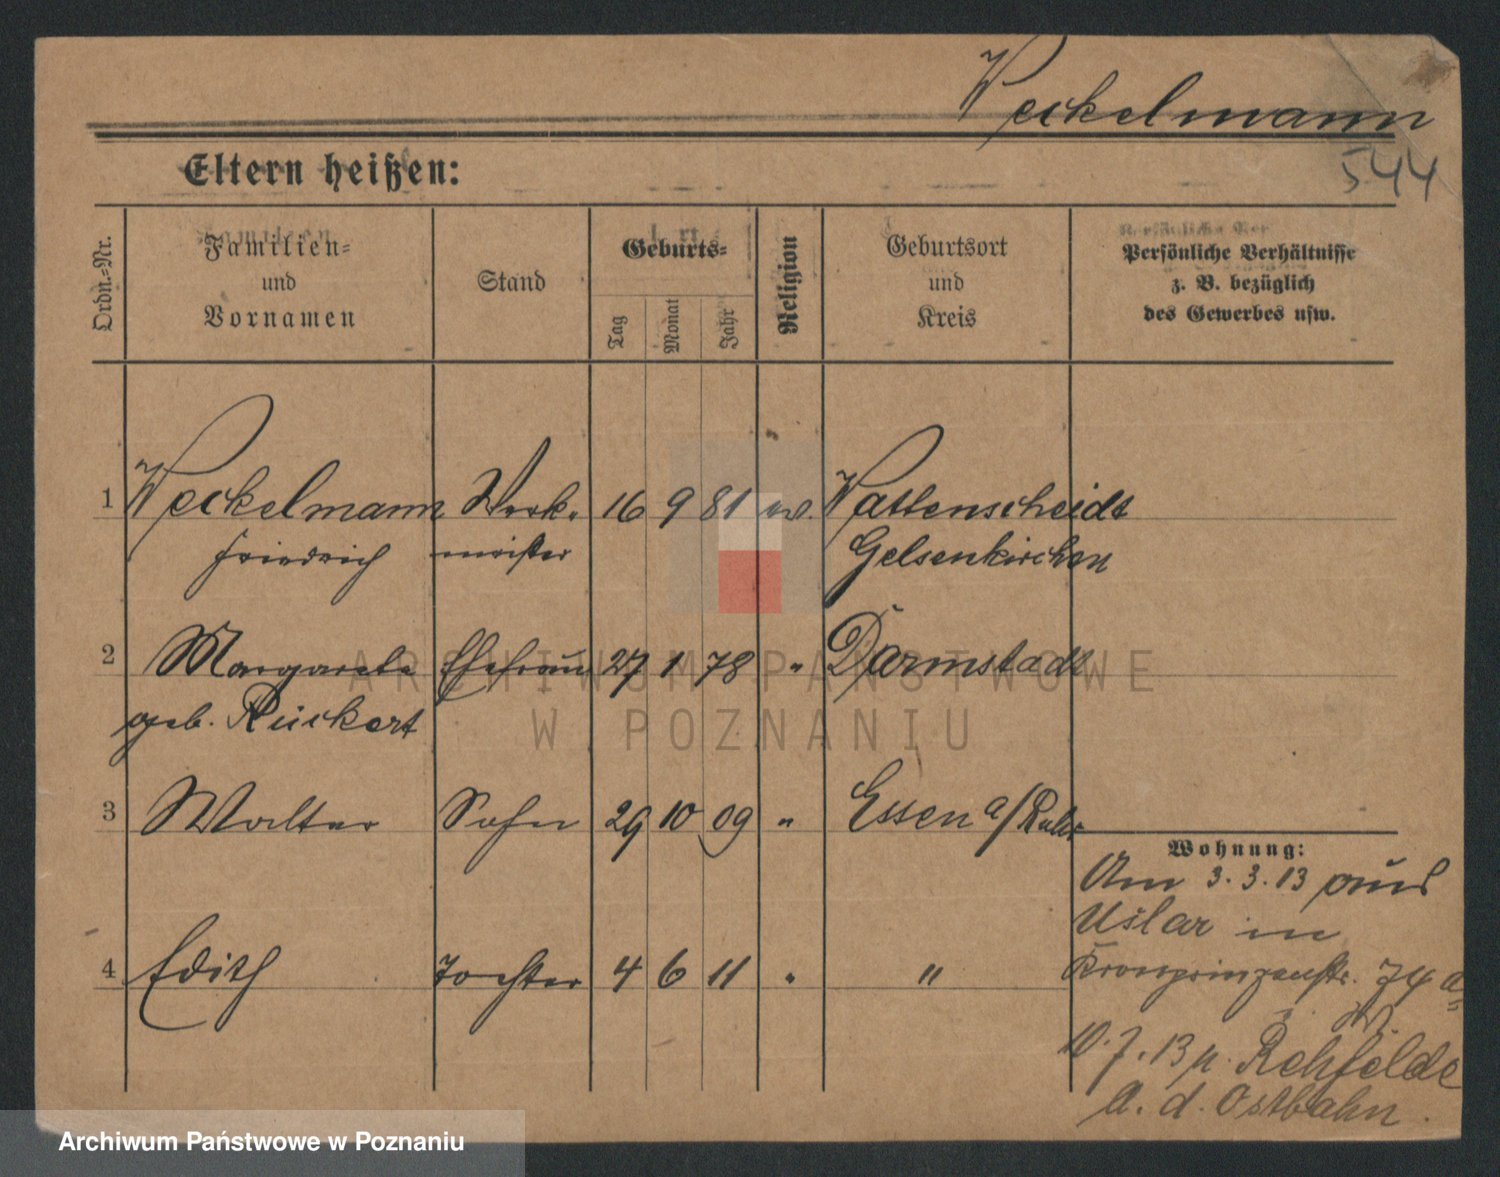 Weckelmann
544
Eltern heißen:
Ordn.-Nr.
Familien-
und
Vornamen
Stand
Geburts-
Tag
Monat
Jahr
Religion
Geburtsort
und
Kreis
Persönliche Verhältnisse
z. B. bezüglich
des Gewerbes usw.
1 Weckelmann Werk- 16 9 81 ev. Wattenscheidt
Friedrich meister Gelsenkirchen
2 Margarete Ehefrau 27 1 78 " Darmstadt
geb. Rückert
3 Walter Sohn 29 10 09 " Essen a/Ruhr
Wohnung:
Am 3.3.13 aus
Uslar in
4 Edith Tochter 4 6 11 " "
Kronprinzenstr. 74 a
10.7.13 n. Rehfelde
a. d. Ostbahn.
ARCHIWUM PAŃSTWOWE
W POZNANIU
Archiwum Państwowe w Poznaniu